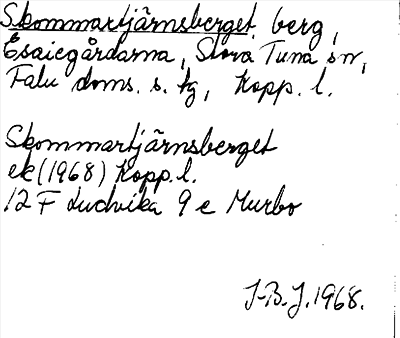 Skommartjärnsberget, berg,
Esaiegårdarna, Stora Tuna sn,
Falu doms. s. tg, Kopp. l.
Skommartjärnsberget
ek (1968) Kopp. l.
12 F Ludvika 9 e Murbo
J-B. J. 1968.